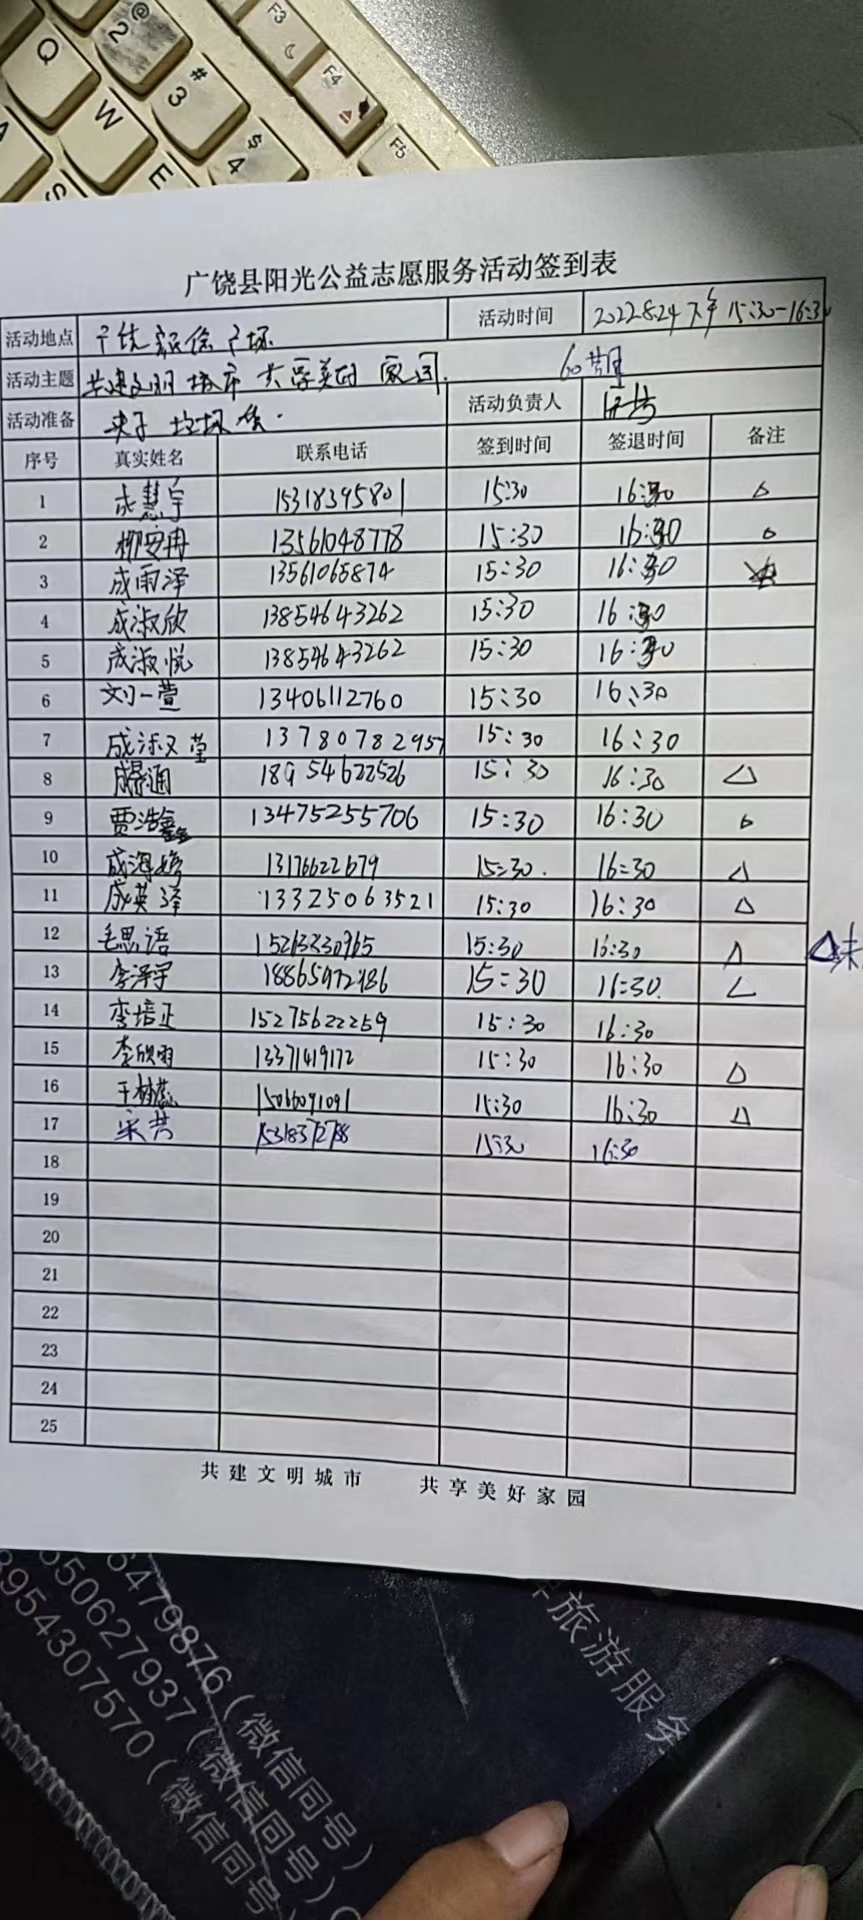 @ 2
# 3
$ 4
F3
F4
F5
Q
W
E
A
S
广饶县阳光公益志愿服务活动签到表
活动地点 活动时间 2022.8.24 下午 15:30-16:30
活动主题 共建文明城市 共享美好家园. 60期
活动准备 夹子 垃圾袋. 活动负责人
序号 真实姓名 联系电话 签到时间 签退时间 备注
1 成慧宇 15318395801 15:30 16:30 △
2 柳安冉 13561048778 15:30 16:30 △
3 成雨泽 13561065874 15:30 16:30
4 成淑欣 13854643262 15:30 16:30
5 成淑悦 13854643262 15:30 16:30
6 刘一萱 13406112760 15:30 16:30
7 13780782957 15:30 16:30
8 18954622526 15:30 16:30 △
9 贾浩鑫 13475255706 15:30 16:30 △
10 13176622679 15:30. 16:30 △
11 成英泽 13325063521 15:30 16:30 △
12 毛思语 15263230965 15:30 16:30 △
13 李泽宇 15:30 16:30. △
14 李培正 15275622259 15:30 16:30
15 李欣雨 13371419172 15:30 16:30 △
16 15066091091 15:30 16:30 △
17 15318372788 15:30 16:30
18
19
20
21
22
23
24
25
共建文明城市 共享美好家园
6479876(微信同号)
550627937(微信同号)
8954307570(微信同号)
旅游服务